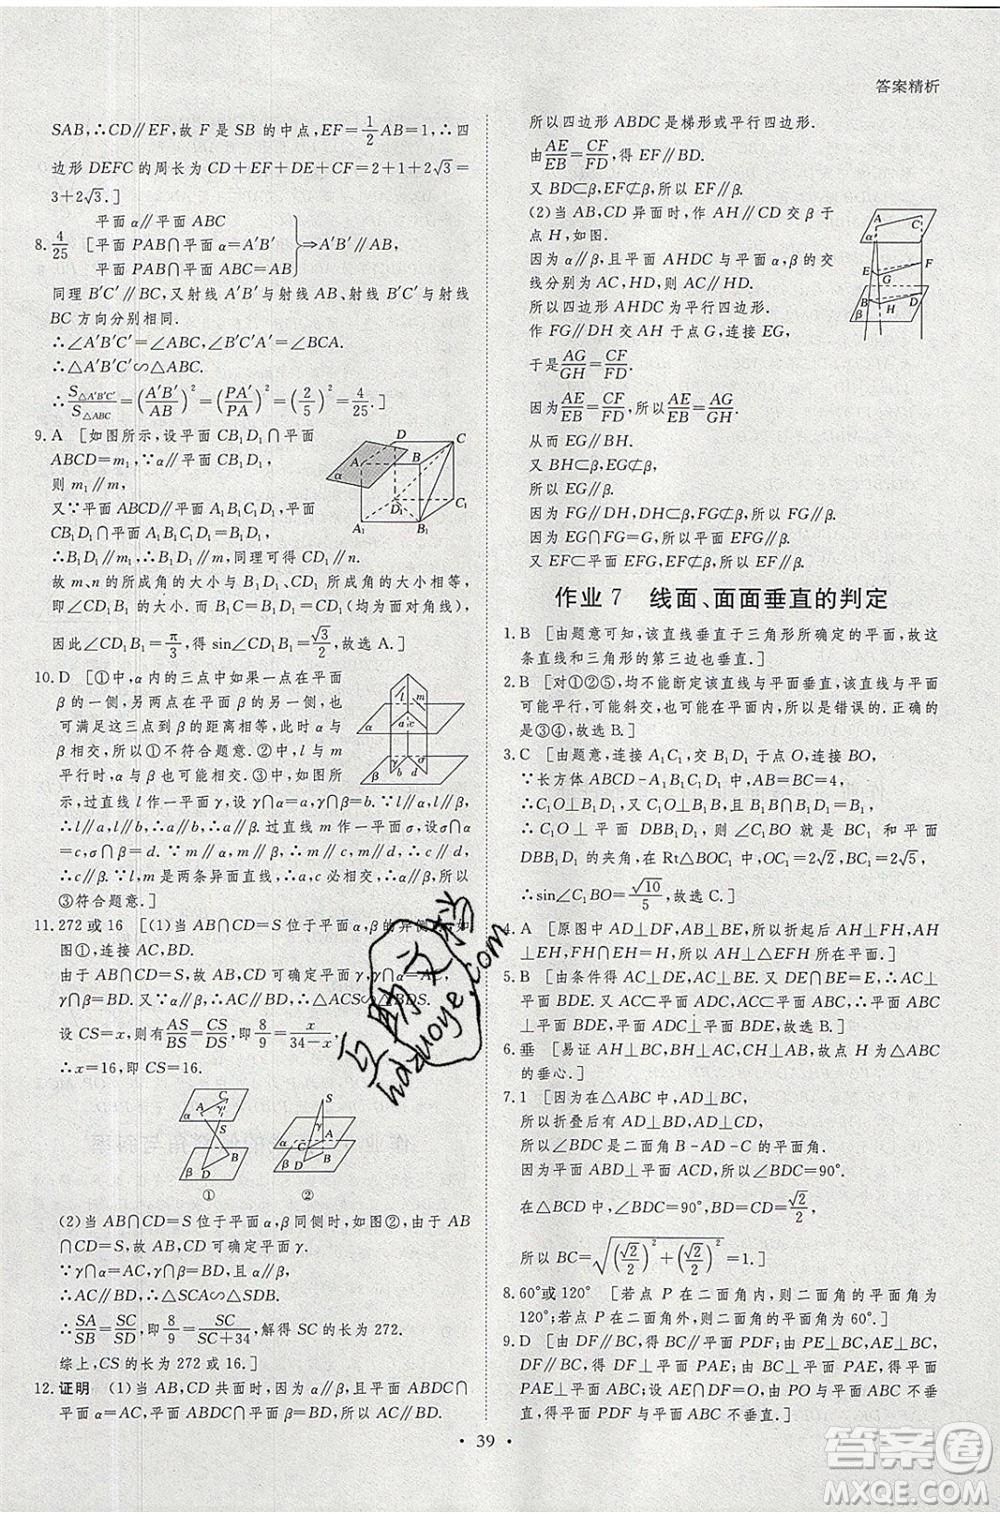 答案精析
SAB,∴CD∥EF,故 F 是 SB 的中点,EF=1/2AB=1,∴四
边形 DEFC 的周长为 CD+EF+DE+CF=2+1+2√3=
3+2√3.]
8. 4/25 [平面 α∥平面 ABC
平面 PAB∩平面 α=A′B′
平面 PAB∩平面 ABC=AB }⇒A′B′∥AB,
同理 B′C′∥BC,又射线 A′B′与射线 AB,射线 B′C′与射线
BC 方向分别相同.
∴∠A′B′C′=∠ABC,∠B′C′A′=∠BCA.
∴△A′B′C′∽△ABC.
∴S△A′B′C′/S△ABC=(A′B′/AB)²=(PA′/PA)²=(2/5)²=4/25.]
9. A [如图所示,设平面 CB₁D₁∩平面
ABCD=m₁,∵α∥平面 CB₁D₁,
则 m₁∥m,
又∵平面 ABCD∥平面 A₁B₁C₁D₁,平面
CB₁D₁∩平面 A₁B₁C₁D₁=B₁D₁,
∴B₁D₁∥m₁,∴B₁D₁∥m,同理可得 CD₁∥n.
故 m、n 的所成角的大小与 B₁D₁、CD₁所成角的大小相等,
即∠CD₁B₁的大小,又∵B₁C=B₁D₁=CD₁(均为面对角线),
因此∠CD₁B₁=π/3,得 sin∠CD₁B₁=√3/2,故选 A.]
10. D [①中,α 内的三点中如果有在平面
β 的一侧的两点,另一点在 β 的另一侧,
也可使这三点到 β 的距离相等,此时 α 与
β 相交,所以①不符合题意.②中,l 与 m
平行时,α 与 β 也可能相交.③中,如图所
示,过直线 l 作一平面 γ,设 γ∩α=a,γ∩β=b.∵l∥α,l∥β,
∴l∥a,l∥b,∴a∥b,∴a∥β.过直线 m 作一平面 σ,设 σ∩α
=c,σ∩β=d.∵m∥α,m∥β,∴m∥c,m∥d,∴c∥d,
∴c∥β.∵l、m 是两条异面直线,∴a,c 必相交,∴α∥β.所以
③符合题意.]
11. 272 或 16 [(1)当 AB∩CD=S 位于平面 α,β 的异侧时,如
图①,连接 AC,BD.
由于 AB∩CD=S,故可确定平面 γ,且
γ∩α=AC,γ∩β=BD.又∵α∥β,∴AC∥BD,∴△ACS∽△BDS.
设 CS=x,则有AS/BS=CS/DS,即8/9=x/(34-x),
∴x=16,即 CS=16.
α A C S β D B ①
S A C α γ β D B ②
(2)当 AB∩CD=S 位于平面 α,β 同侧时,如图②,由于 AB
∩CD=S,故可确定平面 γ.
∵γ∩α=AC,γ∩β=BD,α∥β,∴AC∥BD,∴△SCA∽△SDB.
∴SA/SB=SC/SD,即8/9=SC/(SC+34),∴SC=272.
综上,CS的长为 272 或 16.]
12. 证明 (1)当 AB,CD 共面时,因为 α∥β,且平面 ABDC∩
平面 α=AC,平面 ABDC∩平面 β=BD,所以 AC∥BD,
所以四边形 ABDC 是梯形或平行四边形.
由AE/EB=CF/FD,得 EF∥BD.
又 BD⊂β,EF⊄β,所以 EF∥β.
(2)当 AB,CD 异面时,作 AH∥CD 交 β 于
点 H,如图.
因为 α∥β,且平面 AHDC 与平面 α,β的交
线分别为 AC,HD,所以 AC∥HD.
所以四边形 AHDC 为平行四边形.
作 FG∥DH 交 AH 于点 G,连接 EG,
于是AG/GH=CF/FD.
因为AE/EB=CF/FD,所以AE/EB=AG/GH.
从而 EG∥BH.
又 BH⊂β,EG⊄β,
所以 EG∥β.
因为 FG∥DH,DH⊂β,FG⊄β,所以 FG∥β.
因为 EG∩FG=G,所以平面 EFG∥β.
又 EF⊂平面 EFG,EF⊄β,所以 EF∥β.
作业 7 线面、面面垂直的判定
1. B [由题意可知,该直线垂直于三角形所确定的平面,故这
条直线和三角形的第三边也垂直.]
2. B [对①②⑤,均不能断定该直线与平面垂直,该直线与平面可
能平行,可能斜交,也可能在平面内,所以是错误的.正确
的是③④,故选 B.]
3. C [由题意,连接 A₁C₁,交 B₁D₁ 于点 O,连接 BO,
∵长方体 ABCD-A₁B₁C₁D₁ 中,AB=BC=4,
∴C₁O⊥B₁D₁,又 C₁O⊥BB₁,B₁D₁∩BB₁=B₁,
∴C₁O⊥平面 DBB₁D₁,∴∠C₁BO 就是 BC₁ 与平面
DBB₁D₁ 的夹角,在 Rt△BOC₁ 中,C₁O=2√2,BC₁=2√5,
∴sin∠C₁BO=√10/5,故选 C.]
4. A [原图中 AD⊥DF,AB⊥BE,所以折起后 AH⊥FH,AH⊥
EH,FH∩EH=H,所以 AH⊥平面 EFH.]
5. B [由条件得 AC⊥DE,AC⊥BE,又 DE∩BE=E,所以
AC⊥平面 BDE,又 AC⊂平面 ABC,AC⊂平面 ACD,故平面
ABC⊥平面 BDE,平面 ACD⊥平面 BDE,故选 B.]
6. 垂 [易证 AH⊥BC,BH⊥AC,故点 H 为△ABC
的垂心.]
7. 1 [因为在△ABC 中,AD⊥BC,
所以折叠后有 AD⊥BD,AD⊥CD,
所以∠BDC 是二面角 B-AD-C 的平面角,
因为平面 ABD⊥平面 ACD,所以∠BDC=90°.
在△BCD 中,∠BDC=90°,BD=CD=√2/2,
所以 BC=√((√2/2)²+(√2/2)²)=1.]
8. 60°或 120° [若点 P 在二面角内,则二面角的平面角为
120°;若点 P 在二面角外,则二面角的平面角为 60°.]
9. D [由 DF∥BC,得 BC∥平面 PDF;由 PE⊥BC,AE⊥BC,
得 BC⊥平面 PAE,DF⊥平面 PAE;由 PO 与平面 ABC 垂直,
得平面 PAE⊥平面 ABC.但平面 PDF 与平面 ABC 不垂直.
39
互助文档
hdzuoye.com
答案卷
MXQE.COM